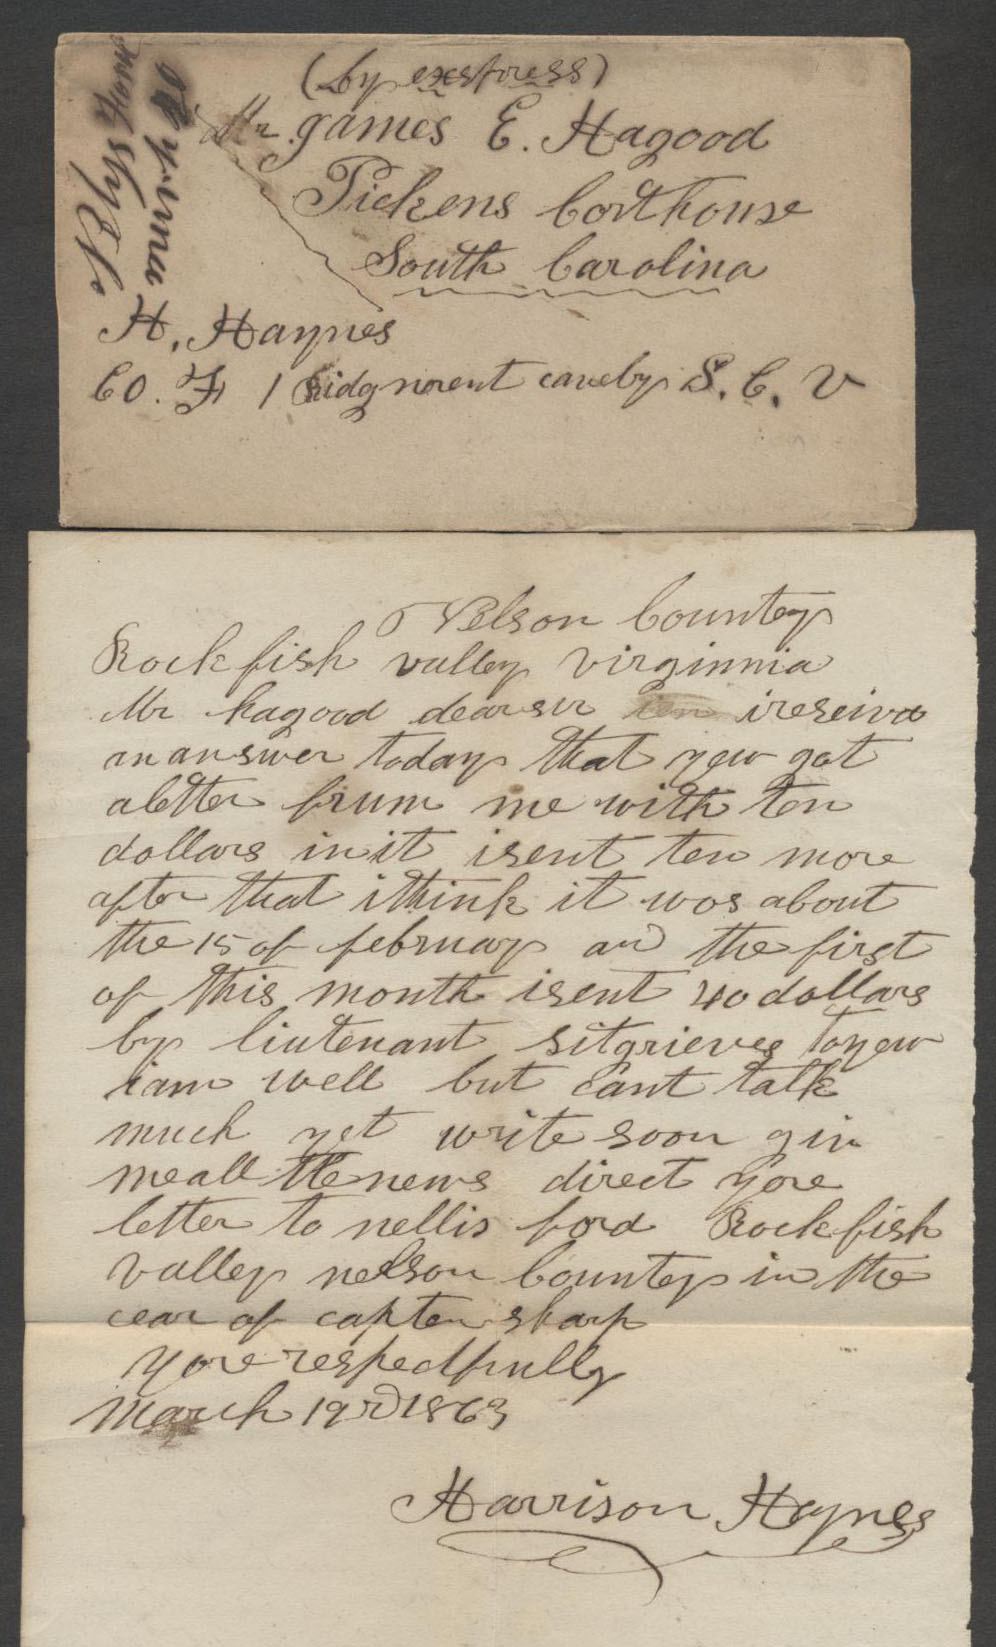 (by exspress)
Mr. games E. Hagood
Pickens Corthouse
South Carolina
H. Haynes
CO. F 1 Ridgment caveby S. C. V
Nelson County
Rockfish valley virginnia
Mr hagood dearsir ireseivd
an answer today that yew got
a letter frum me with ten
dollars in it i sent ten more
after that i think it wos about
the 15 of february and the first
of this month i sent 40 dollars
by liutenant sitgrieves to yew
i am well but cant talk
much yet write soon giv
me all the news direct yore
letter to nellis ford Rockfish
valley nelson County in the
cear of capten sharp
yore respectfully
March 19rd 1863
Harrison Haynes